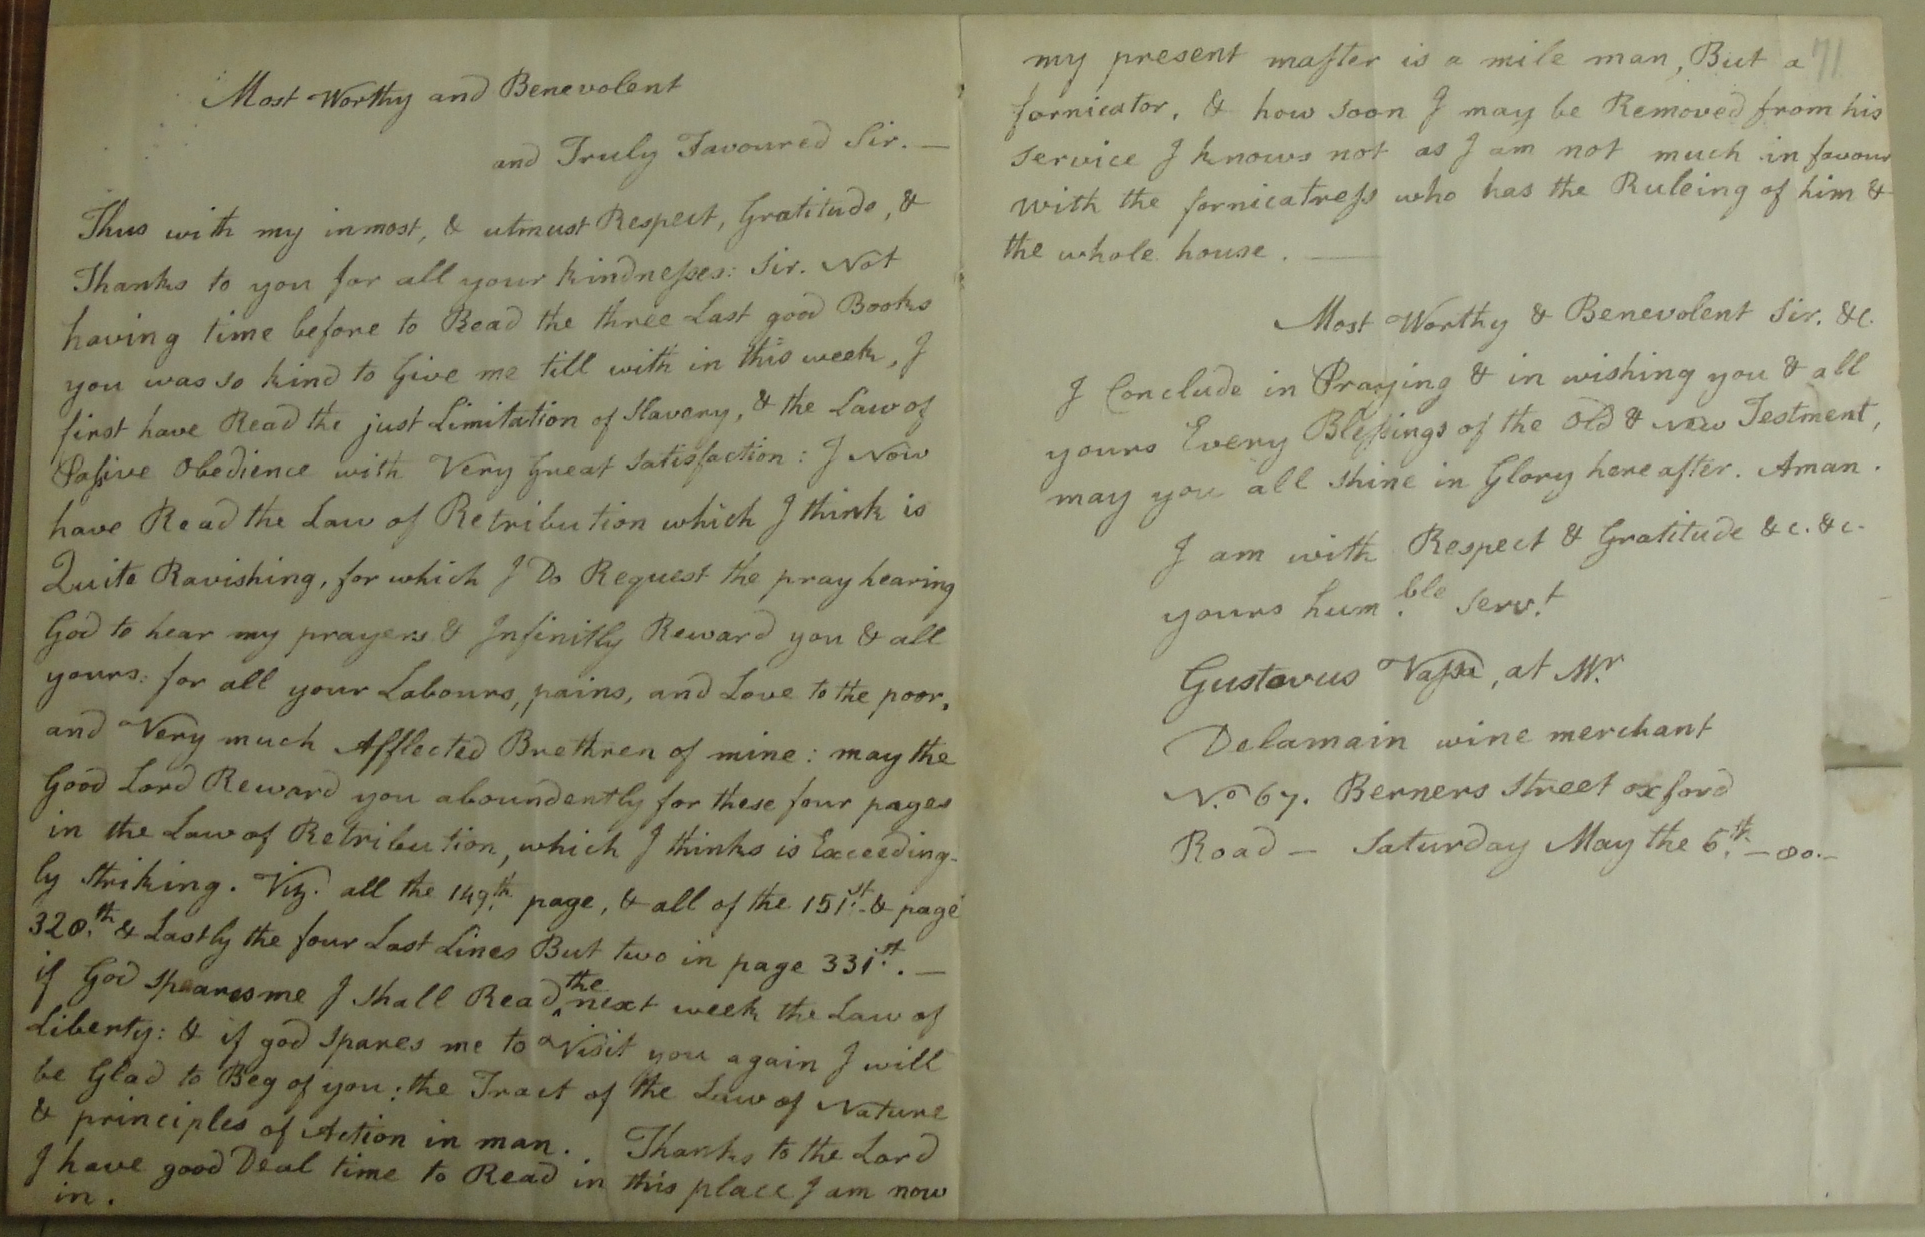 Most Worthy and Benevolent
and Truly Favoured Sir. —
Thus with my inmost, & utmust Respect, Gratitude, &
Thanks to you for all your kindnesses: Sir. Not
having time before to Read the three Last good Books
you was so kind to Give me till with in this week, I
first have Read the just Limitation of Slavery, & the Law of
Passive Obedience with Very Great Satisfaction: I Now
have Read the Law of Retribution which I think is
Quite Ravishing, for which I Do Request the pray hearing
God to hear my prayers & Infinitly Reward you & all
yours: for all your Labours, pains, and Love to the poor,
and Very much Afflected Brethren of mine: may the
Good Lord Reward you aboundently for these four pages
in the Law of Retribution, which I thinks is Exceeding-
ly striking. Viz. all the 149.th page, & all of the 151.st & page
328.th & Lastly the four Last Lines But two in page 331.st. —
if God spares me I shall Read the next week the Law of
Liberty: & if god spares me to Visit you again I will
be Glad to Beg of you: the Tract of the Law of Nature
& principles of Action in man. . Thanks to the Lord
I have good Deal time to Read in this place I am now
in.
71
my present master is a mile man, But a
fornicator, & how soon I may be Removed from his
service I knows not as I am not much in favour
with the fornicatress who has the Ruleing of him &
the whole house. —
Most Worthy & Benevolent Sir. &c.
I Conclude in Praying & in wishing you & all
yours Every Blessings of the Old & New Testment,
may you all shine in Glory here after. Aman.
I am with Respect & Gratitude &c. &c.
yours hum.ble Serv.t
Gustavus Vassa, at Mr.
Delamain wine merchant
N.o 67. Berners Street oxford
Road — Saturday May the 6.th — 80. —